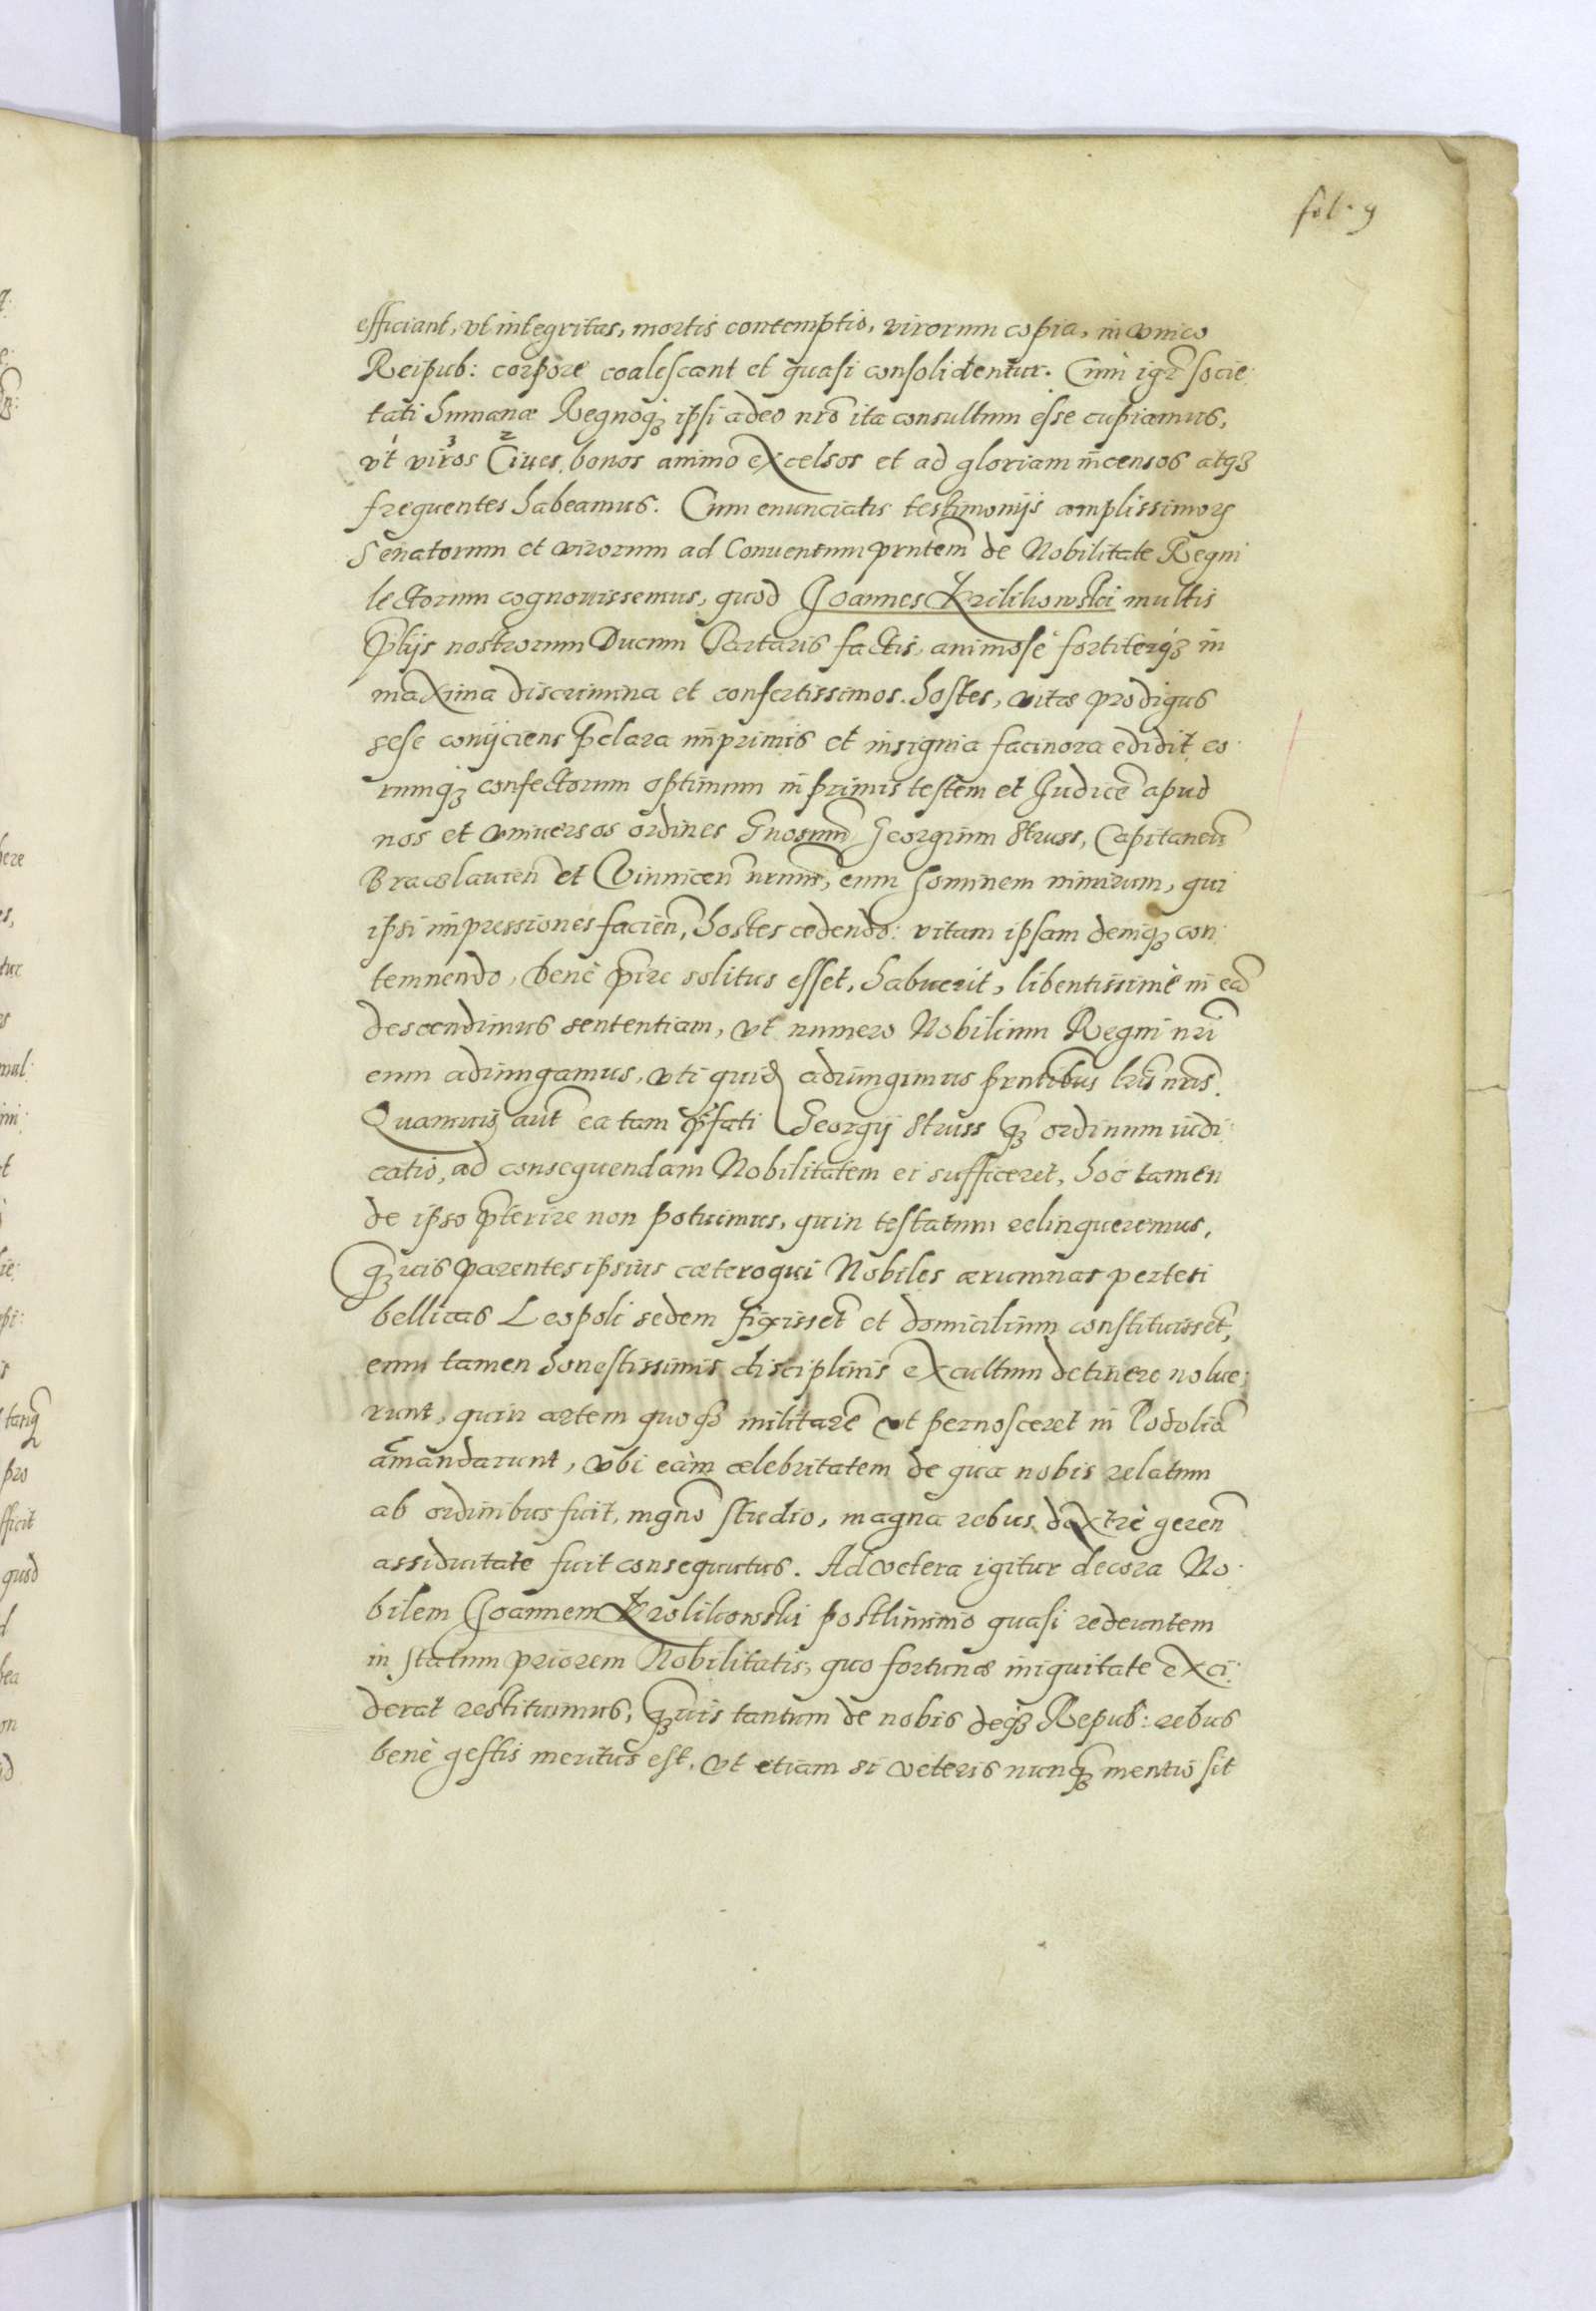 fol. 9
efficiant, vt integritas, mortis contemptio, virorum copia, in vnico
Reipub: corpore coalescant et quasi consolidentur. Cum igr̃ socie
tati humanæ Regnoqꝫ ipsi adeo nr̃o ita consultum esse cupiamus,
1 3 2
vt viros Ciues, bonos animo excelsos et ad gloriam incensos atqꝫ
frequentes habeamus. Cum enunciatis testimonijs amplissimorꝫ
Senatorum et virorum ad Conuentum pr̃ntem de Nobilitate Regni
lectorum cognouissemus, quod Joannes Krolikowski multis
p̃lijs nostrorum Ducum Tartaris factis, animosè fortiterqꝫ in
maxima discrimina et confertissimos hostes, vitæ prodigus
sese conijciens p̃clara inprimis et insignia facinora edidit, eo
rumqꝫ confectorum optimum in primis testem et Judicẽ apud
nos et vniuersos ordines Gnosum̃ Georgium Struss, Capitaneũ
Braclauieñ et Vinniceñ nr̃um, eum hominem nimirum, qui
ipsi impressiones facieñ, hostes cedendo: vitam ipsam deniqꝫ con
temnendo, benè p̃ire solitus esset, habuerit, libentissimè in eã
descendimus sententiam, vt numero Nobilium Regni nr̃i
eum adiungamus, vti quidẽ adiungimus pr̃ntibus lr̃is nr̃is.
Quamuis aut̃ ea tam p̃fati Georgij Struss qꝫ ordinum iudi
catio, ad consequendam Nobilitatem ei sufficeret, hoc tamen
de ipso p̃terire non potuimus, quin testatum relinqueremus,
qꝫuis parentes ipsius cæteroqui Nobiles ærumnas pertesi
bellicas Leopoli sedem fixisset̃ et domicilium constituisset̃,
eum tamen honestissimis disciplinis excultum detinere nolue
runt, quin artem quoqꝫ militarẽ vt pernosceret in Podoliã
amandarunt, vbi eàm celebritatem de qua nobis relatum
ab ordinibus fuit, mgño studio, magna rebus dextrè gereñ
assiduitate fuit consequutus. Ad vetera igitur decora No
bilem Joannem Krolikowski postliminio quasi redeuntem
in statum priorem Nobilitatis, quo fortunæ iniquitate exci
derat restituimus, qꝫuis tantum de nobis deqꝫ Repub: rebus
benè gestis meritus est, vt etiam si veteris nunqꝫ mentio sit